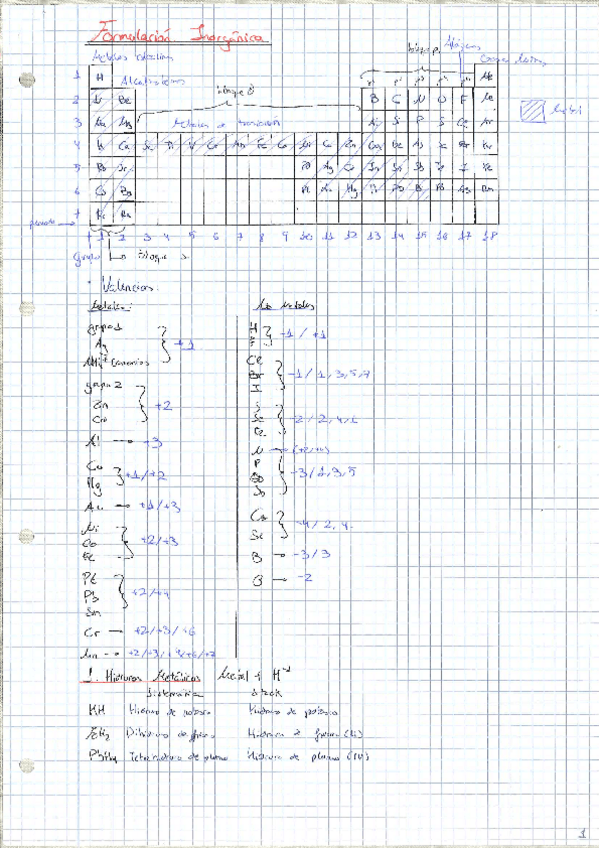 Formulación Inorgánica
Metales alcalinos
Gases nobles
bloque p
1 H Alcalinotérreos He
bloque d
2 Li Be B C N O F Ne
3 Na Mg Metales de transición Al Si P S Cl Ar
4 K Ca Sc Ti V Cr Mn Fe Co Ni Cu Zn Ga Ge As Se Br Kr
Metal
5 Rb Sr Pd Ag Cd In Sn Sb Te I Xe
6 Cs Ba Pt Au Hg Tl Pb Bi Po At Rn
7 Fr Ra
periodo
1 2 3 4 5 6 7 8 9 10 11 12 13 14 15 16 17 18
grupo Bloque s
· Valencias:
Metales: No metales
grupo 1
Ag +1
H
F -1 / +1
grupo 2
Zn +2
Cl
Br -1 / 1, 3, 5, 7
I
Al → +3
S
Se -2 / 2, 4, 6
Te
Cu
Hg +1/+2
N
P -3 / 1, 3, 5
Au → +1/+3
Ni
Co +2/+3
Fe
C
Si -4 / 2, 4
B → -3/3
O → -2
Pt
Pb +2/+4
Sn
Cr → +2/+3/+6
Mn → +2/+3/+4/+6/+7
1. Hidruros Metálicos Metal + H⁻¹
Sistemática Stock
KH Hidruro de potasio Hidruro de potasio
FeH₂ Dihidruro de hierro Hidruro de hierro (II)
PbH₄ Tetrahidruro de plomo Hidruro de plomo (IV)
1